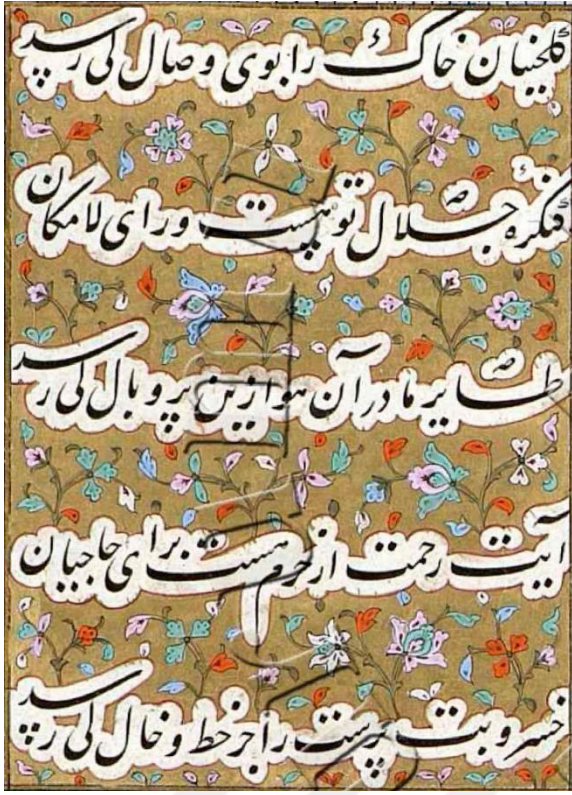 گلخنیان خاک را بوی وصال کی رسد
کنگرهٔ جلال تو هست ورای لامکان
طایر ما در آن هوا زین پر و بال کی رسد
آیت رحمت از حرم هست برای حاجیان
خسرو بت پرست را جز خط و خال کی رسد